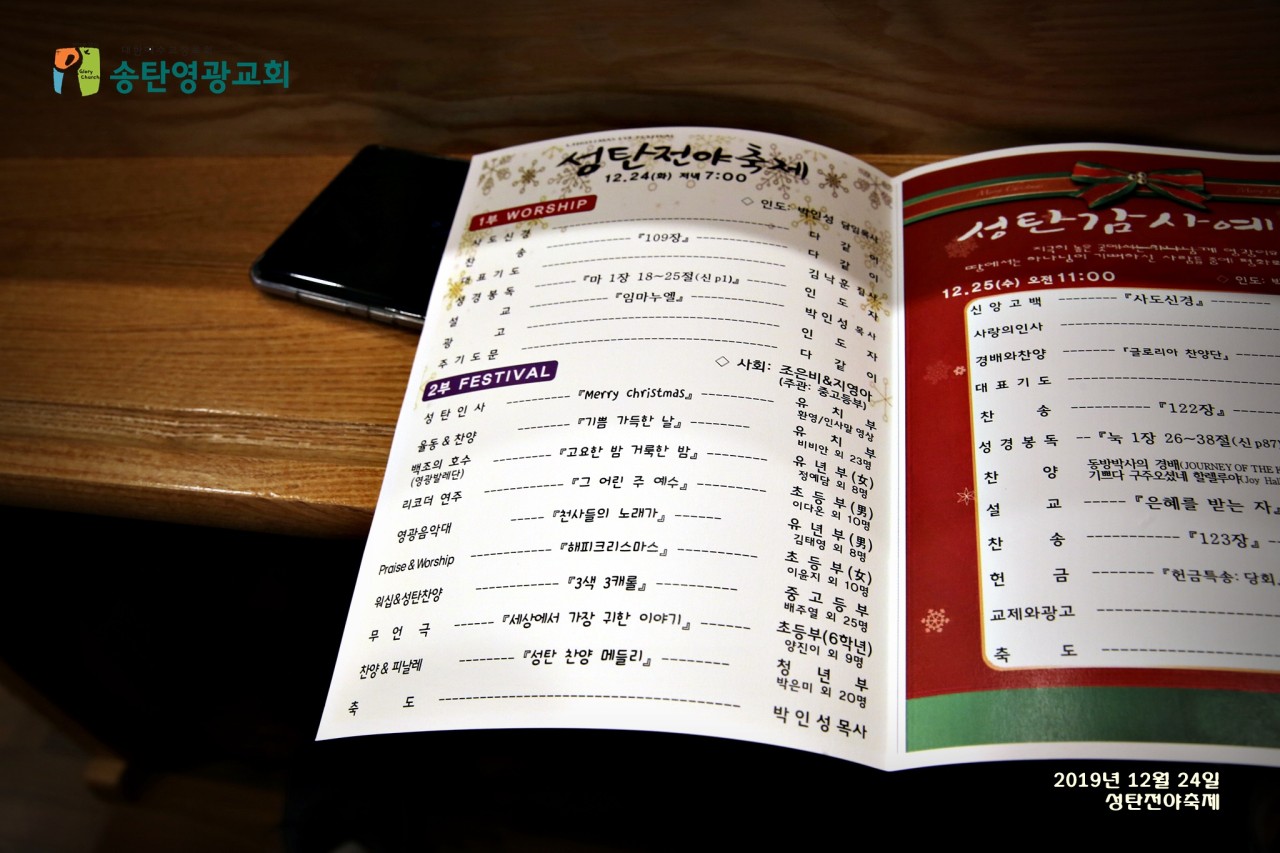 Glory
Church
송탄영광교회
성탄전야축제
12.24(화) 저녁 7:00
1부 WORSHIP
◇ 인도: 박인성 담임목사
사도신경 ---------- 다 같 이
찬 송 ---------- 『109장』 ---------- 다 같 이
대표기도 ---------- 김낙훈 집사
성경봉독 ---------- 『마 1장 18~25절(신 p1)』 ---------- 인 도 자
설 교 ---------- 『임마누엘』 ---------- 박인성 목사
광 고 ---------- 인 도 자
주기도문 ---------- 다 같 이
2부 FESTIVAL
◇ 사회: 조은비&지영아
(주관: 중고등부)
성탄인사 ---------- 『Merry Christmas』 ---------- 유 치 부
환영/인사말 영상
율동 & 찬양 ---------- 『기쁨 가득한 날』 ---------- 유 치 부
비비안 외 23명
백조의 호수 ---------- 『고요한 밤 거룩한 밤』 ---------- 유년부(女)
(영광발레단) 정예담 외 8명
리코더 연주 ---------- 『그 어린 주 예수』 ---------- 초등부(男)
이다온 외 10명
영광음악대 ----- 『천사들의 노래가』 ---------- 유년부(男)
김태영 외 8명
Praise & Worship ---------- 『해피크리스마스』 ---------- 초등부(女)
이윤지 외 10명
워십&성탄찬양 ---------- 『3색 3캐롤』 ---------- 중고등부
배주열 외 25명
무 언 극 ------ 『세상에서 가장 귀한 이야기』 ------ 초등부(6학년)
양진이 외 9명
찬양 & 피날레 --------- 『성탄 찬양 메들리』 --------- 청 년 부
박은미 외 20명
축 도 ---------- 박인성목사
성탄감사예
땅에서는 하나님이 기뻐하신 사람들 중에
12.25(수) 오전 11:00
◇ 인도:
신앙고백 --------- 『사도신경』 ---------
사랑의인사 ----------
경배와찬양 -------- 『글로리아 찬양단』 --------
대표기도 ----------
찬 송 ----------- 『122장』 ----------
성경봉독 -- 『눅 1장 26~38절(신 p87
찬 양 동방박사의 경배(JOURNEY OF THE
기쁘다 구주오셨네 할렐루야(Joy
설 교 ------- 『은혜를 받는 자』
찬 송 ----------- 『123장』 ----------
헌 금 -------- 『헌금특송: 당회
교제와광고 ----------
축 도 ----------
2019년 12월 24일
성탄전야축제